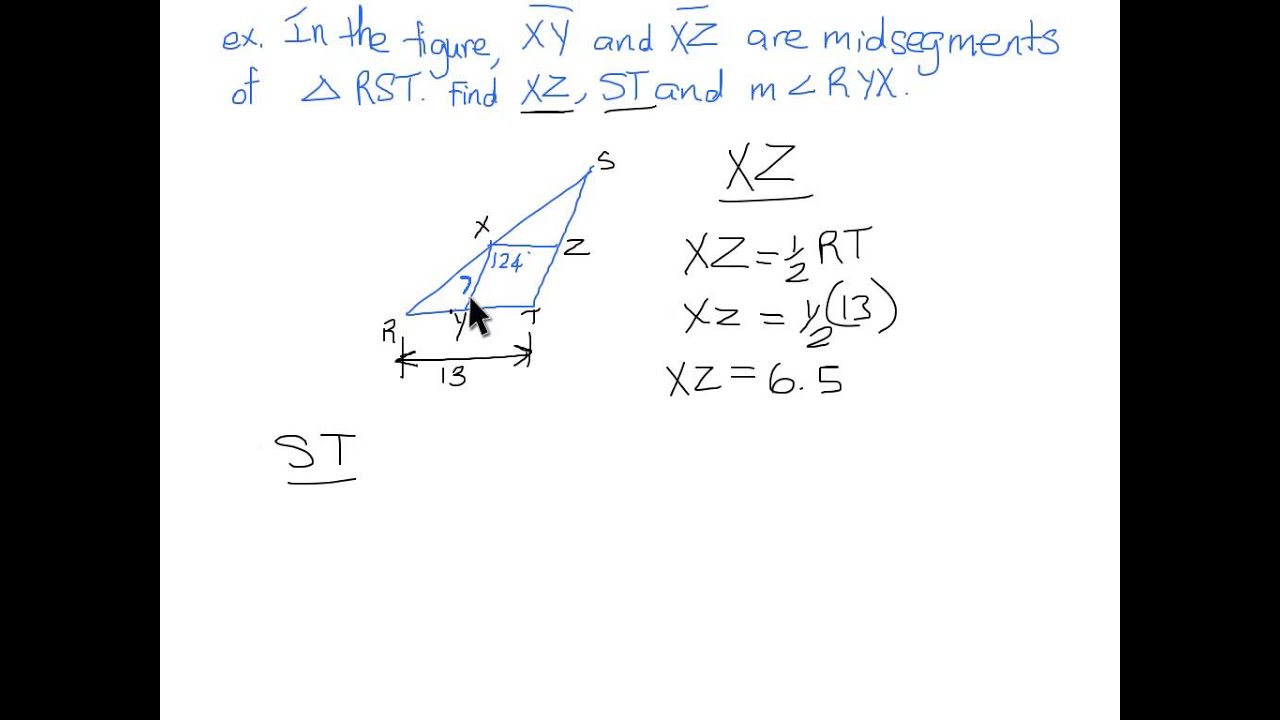 ex. In the figure, XY and XZ are midsegments
of △ RST. Find XZ, ST and m∠RYX.
S
XZ
X
Z
124°
XZ = 1/2 RT
7
R
Y
T
XZ = 1/2 (13)
13
XZ = 6.5
ST